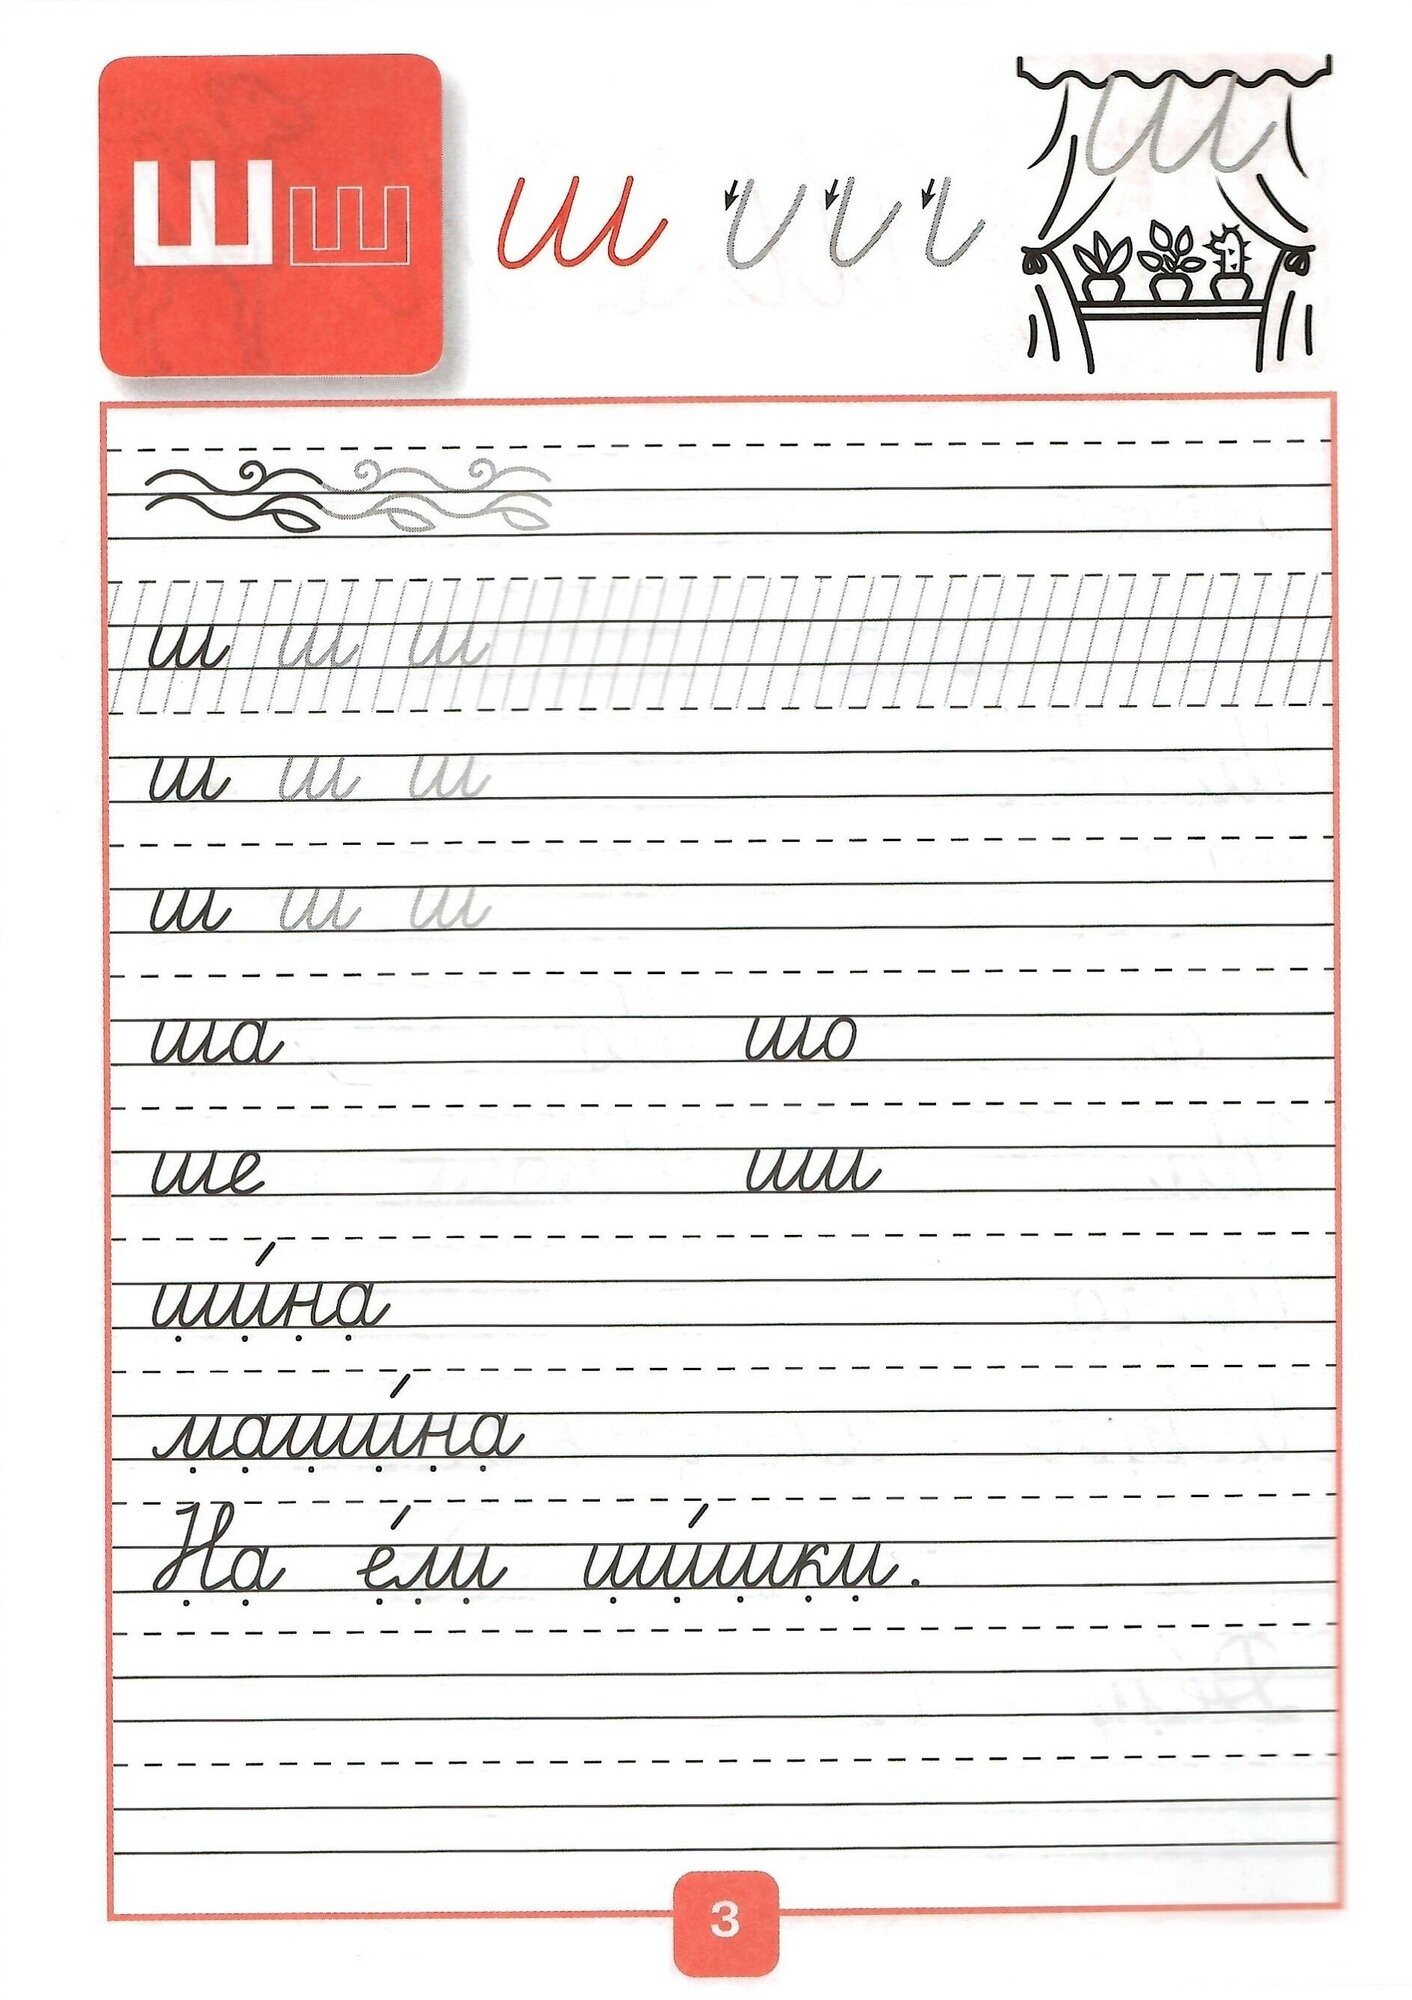 Ш ш ш ш
ш ш ш
ш ш ш
ш ш ш
ша шо
ше ши
ши́на
маши́на
На е́ли ши́шки.
3